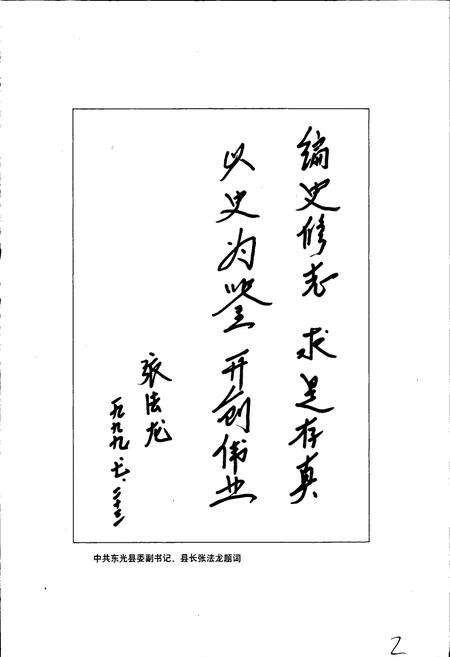 编史修志 求是存真
以史为鉴 开创伟业
张法龙
一九九九.七.二十三
中共东光县委副书记、县长张法龙题词
2